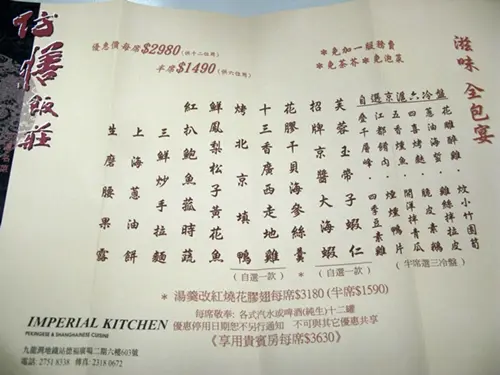 滋味全包宴
仿膳飯莊
優惠價每席$2980(供十二位用)
半席$1490(供六位用)
*免加一服務費
*免茶芥*免泡菜
自選京滬六冷盤
花雕醉雞
蔥油海蜇
四喜烤麩
五香燻魚
江都餚肉
千層峰
炆小竹園筍
雞絲拉皮
脆皮素鵝
開洋青瓜
煙燻鴨片
(半席選三冷盤)
芙蓉玉帶子蝦仁
*
招牌京醬大海蝦
(自選一款)
花膠干貝海參絲羹
十三香廣西走地雞
*
烤北京填鴨
(自選一款)
鮮鳳梨松子黃花魚
紅扒鮑魚菇時蔬
海鮮炒手拉麵
上海蔥油餅
生磨腰果露
*湯羹改紅燒花膠翅每席$3180(半席$1590)
每席敬奉:各式汽水或啤酒(純生)十二罐
優惠停用日期恕不另行通知 不可與其它優惠共享
《享用貴賓房每席$3630》
IMPERIAL KITCHEN
PEKINGESE & SHANGHAINESE CUISINE
九龍灣地鐵站德福廣場二期六樓603號
電話:2751 8338 傳真:2318 0672